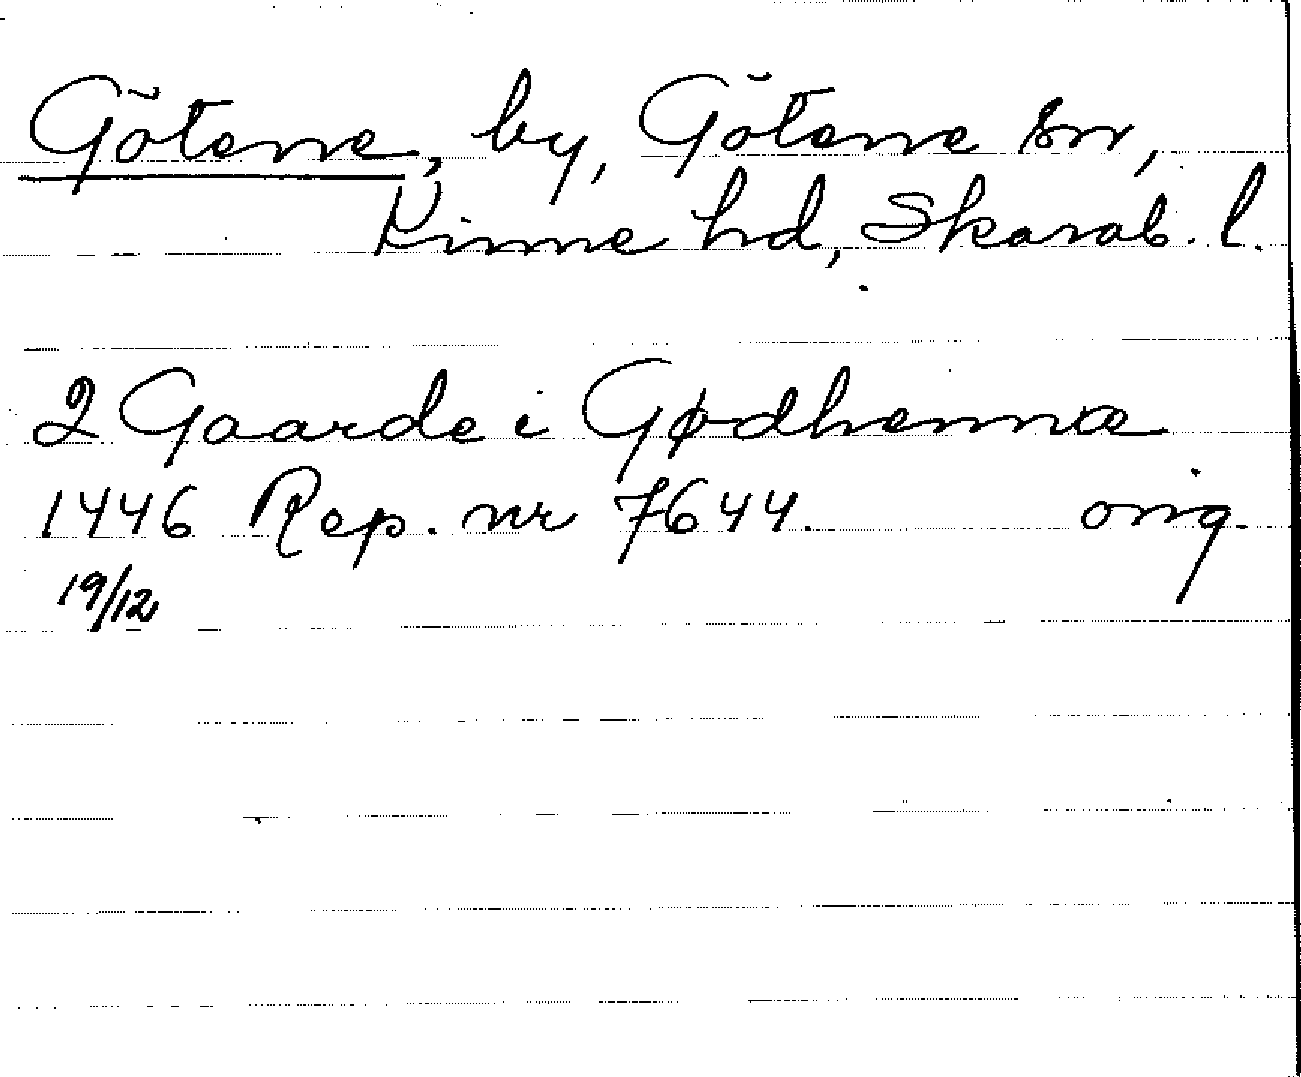 Götene, by, Götene sn,
Kinne hd, Skarab. l.
2 Gaarde i Gødhennæ
1446 Rep. nr 7644. orig.
19/12